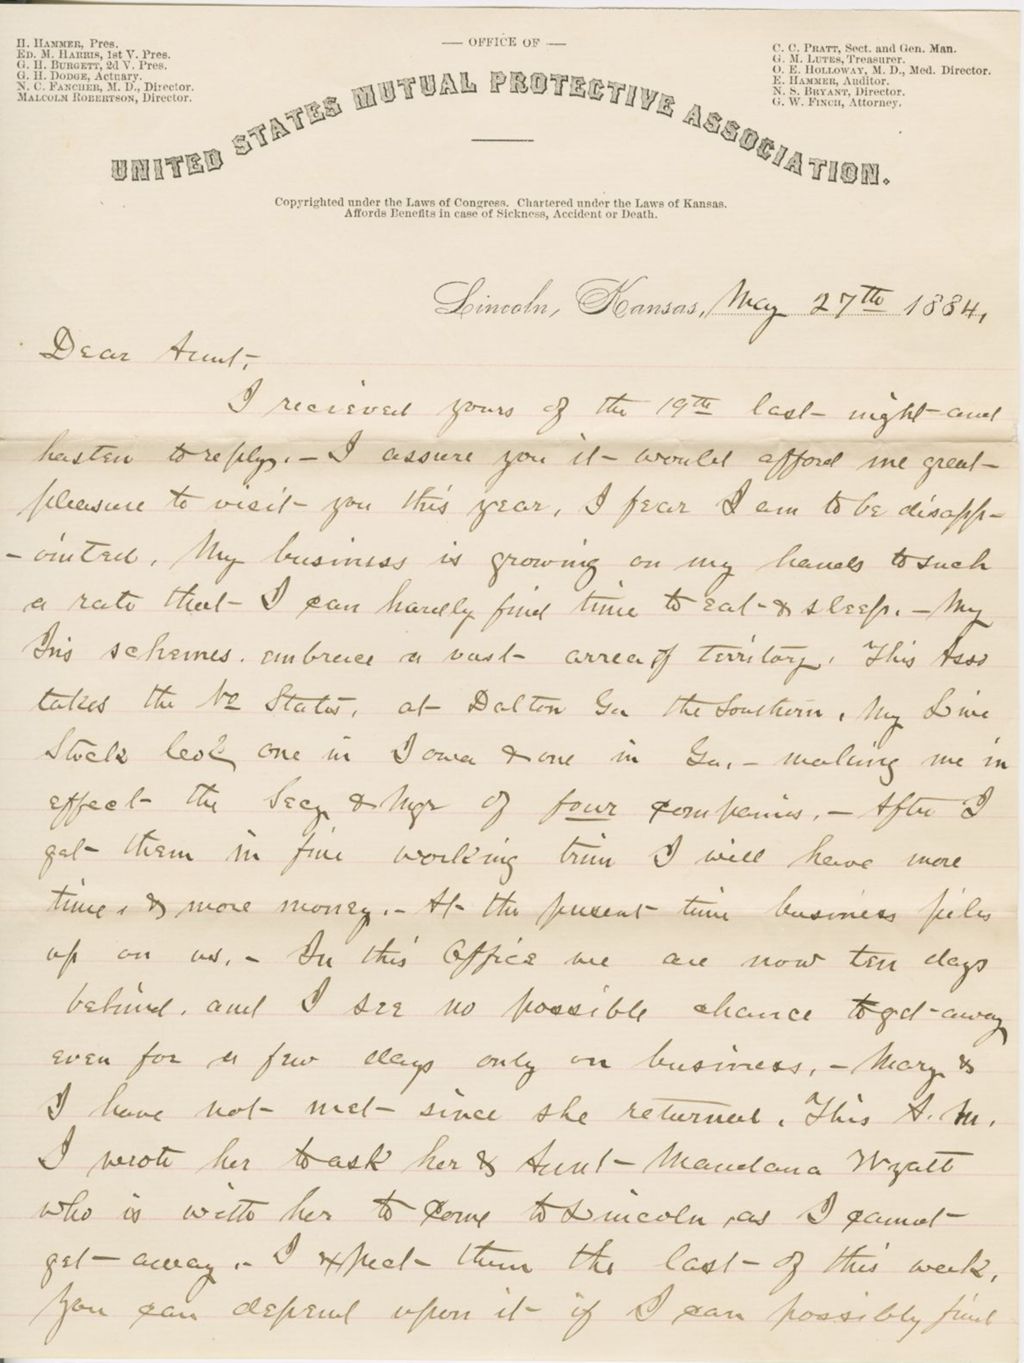 H. HAMMER, Pres.
ED. M. HARRIS, 1st V. Pres.
G. H. BURGETT, 2d V. Pres.
G. H. DODGE, Actuary.
N. C. FANCHER, M. D., Director.
MALCOLM ROBERTSON, Director.
— OFFICE OF —
C. C. PRATT, Sect. and Gen. Man.
G. M. LUTES, Treasurer.
O. E. HOLLOWAY, M. D., Med. Director.
E. HAMMER, Auditor.
N. S. BRYANT, Director.
G. W. FINCH, Attorney.
UNITED STATES MUTUAL PROTECTIVE ASSOCIATION.
Copyrighted under the Laws of Congress. Chartered under the Laws of Kansas.
Affords Benefits in case of Sickness, Accident or Death.
Lincoln, Kansas, May 27th 1884,
Dear Aunt,
I recieved yours of the 19th last night and
hasten to reply. – I assure you it would afford me great
pleasure to visit you this year, I fear I am to be disapp-
-ointed. My business is growing on my hands to such
a rate that I can hardly find time to eat & sleep. – My
Ins schemes embrace a vast arrea of territory. This Asso
takes the No States, at Dalton Ga the Southern, My Live
Stock one in Iowa & one in Ga. – making me in
effect the Secy & Mgr of four companies. – After I
get them in fine working trim I will have more
time, & more money. – At the present time business piles
up on us. – In this Office we are now ten days
behind, and I see no possible chance to get away
even for a few days only on business. – Mary &
I have not met since she returned. This A. M.
I wrote her to ask her & Aunt Mandana Wyatt
who is with her to come to Lincoln as I cannot
get away. – I expect them the last of this week,
You can depend upon it if I can possibly find